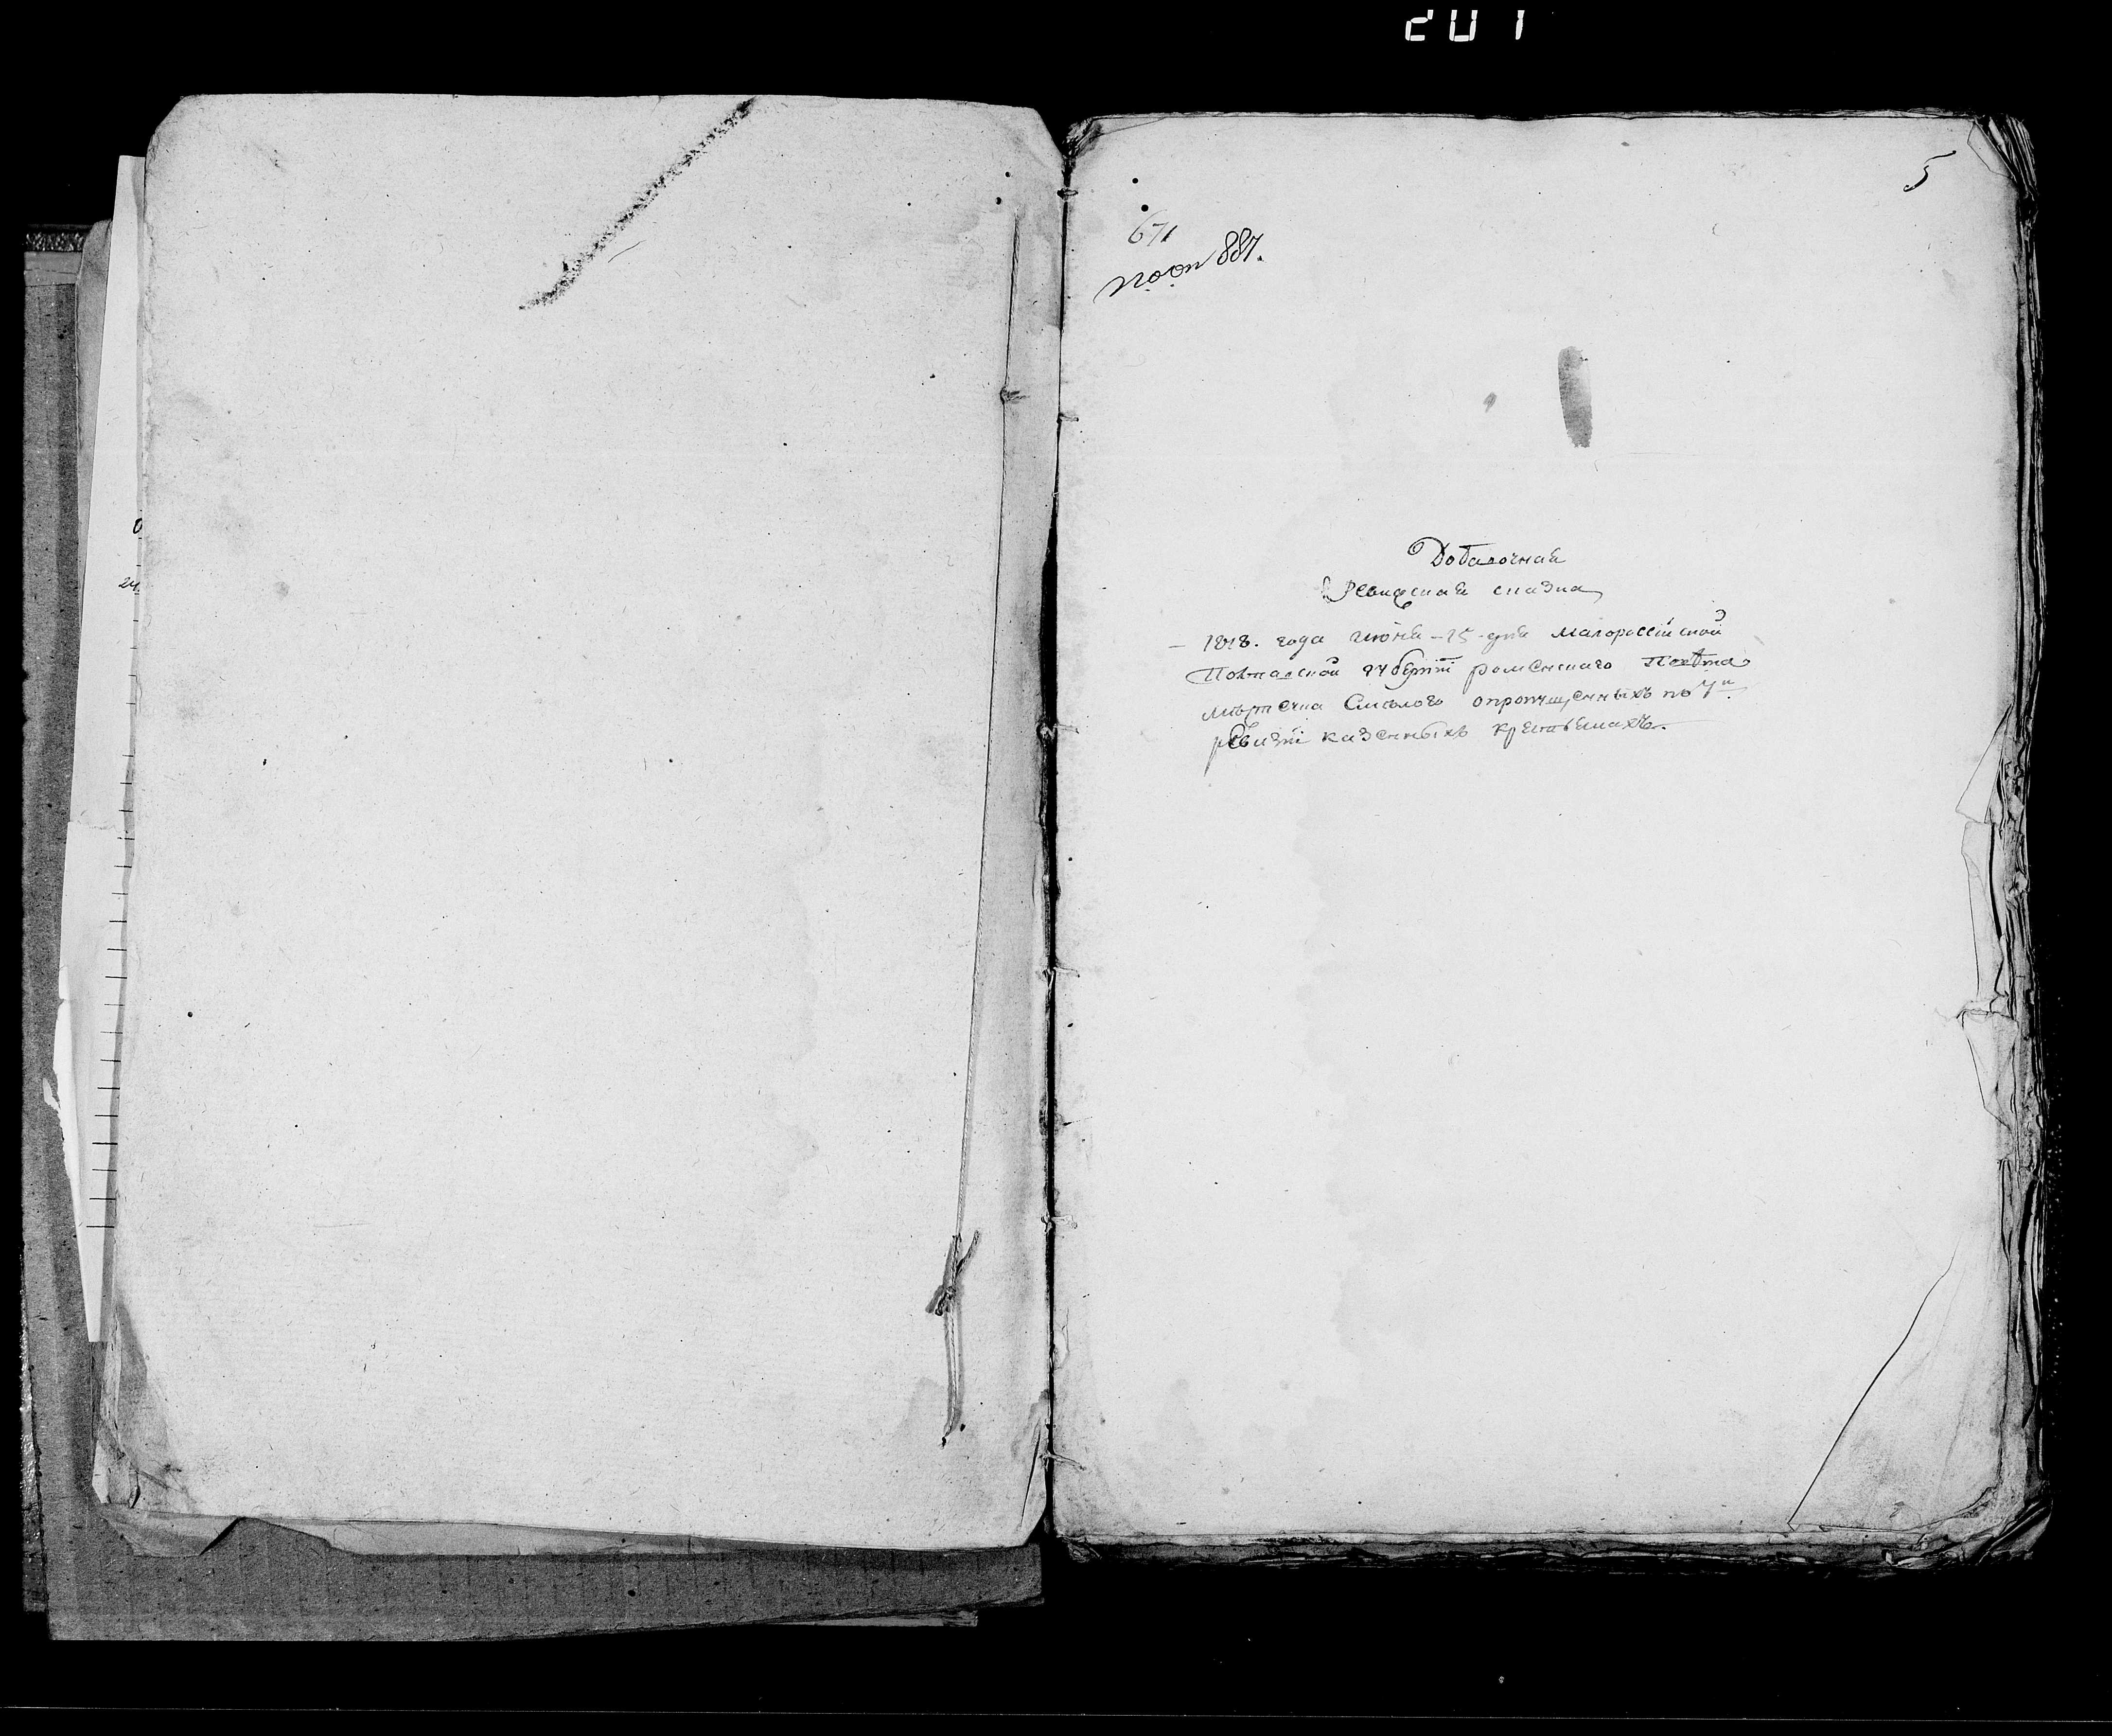 201
5
671
по оп 887.
Добавочная
Ревижская сказка
1818. года июня 25 дня Малороссийской
Полтавской губернии роменского Повѣта
мѣстечка Смѣлого опропущенныхъ по 7й
ревизии казенныхъ крестьянахъ.